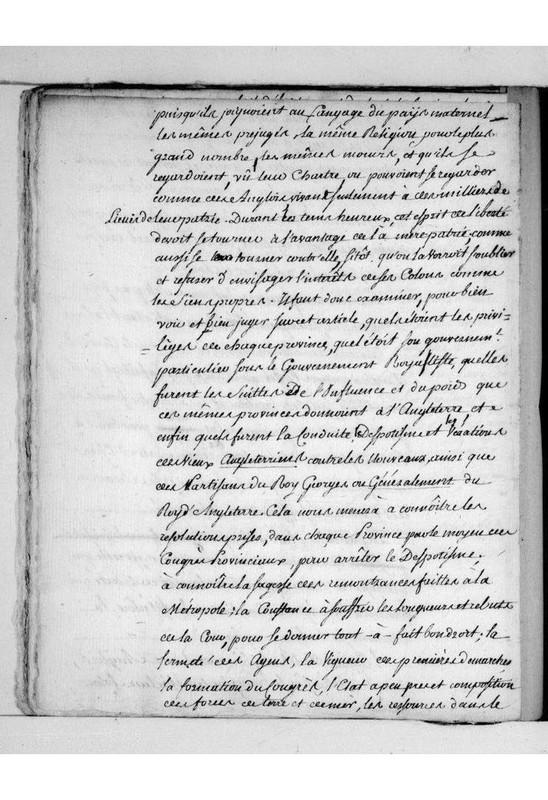 puisqu'ils joignoient au Langage du païs maternel
les mêmes prejugés, la même Religion pour le plus
grand nombre, les mêmes moeurs, et qu'ils se
regardoient, vû leur Chartre, ou pouvoient se regarder
comme des Anglois vivant seulement à des milliers de
Lieues de leur patrie. Durant ces tems heureux, cet esprit de liberté
devoit se tourner à l'avantage de la mère patrie, comme
aussi se tourner contr'elle, sitôt qu'on la verroit s'oublier
et refuser d'envisager l'interêts de ses Colons comme
les siens propres. Il faut donc examiner, pour bien
voir et bien juger sur cet article, quels etoient les privi-
=lèges de chaque province, quel étoit son gouvernem.t
particulier sous le Gouvernement Royaliste, quelles
furent les suittes de l'Influence et du poids que
ces mêmes provinces donnoient à l'Angleterre et
enfin quels furent la Conduite, le Despotisme et les Vexations
des vieux Angleterriens contre les Nouveaux, ainsi que
des Partisans du Roy Georges ou Généralement du
Roy d'Angleterre. Cela nous menera à connoître les
resolutions prises, dans chaque Province par le moyen des
Congrès Provinciaux, pour arrêler le Despotisme.
à connoître la sagesse des remontrances faittes à la
Métropole; la Constance à souffrir les longueurs et rebuts
de la Cour, pour se donner tout-à-fait bon droit; la
fermeté des Agens, la Vigueur des premières demarches
la formation du Congrès, l'Etat a peu pres et composition
des forces de terre et de mer, les ressources dans le